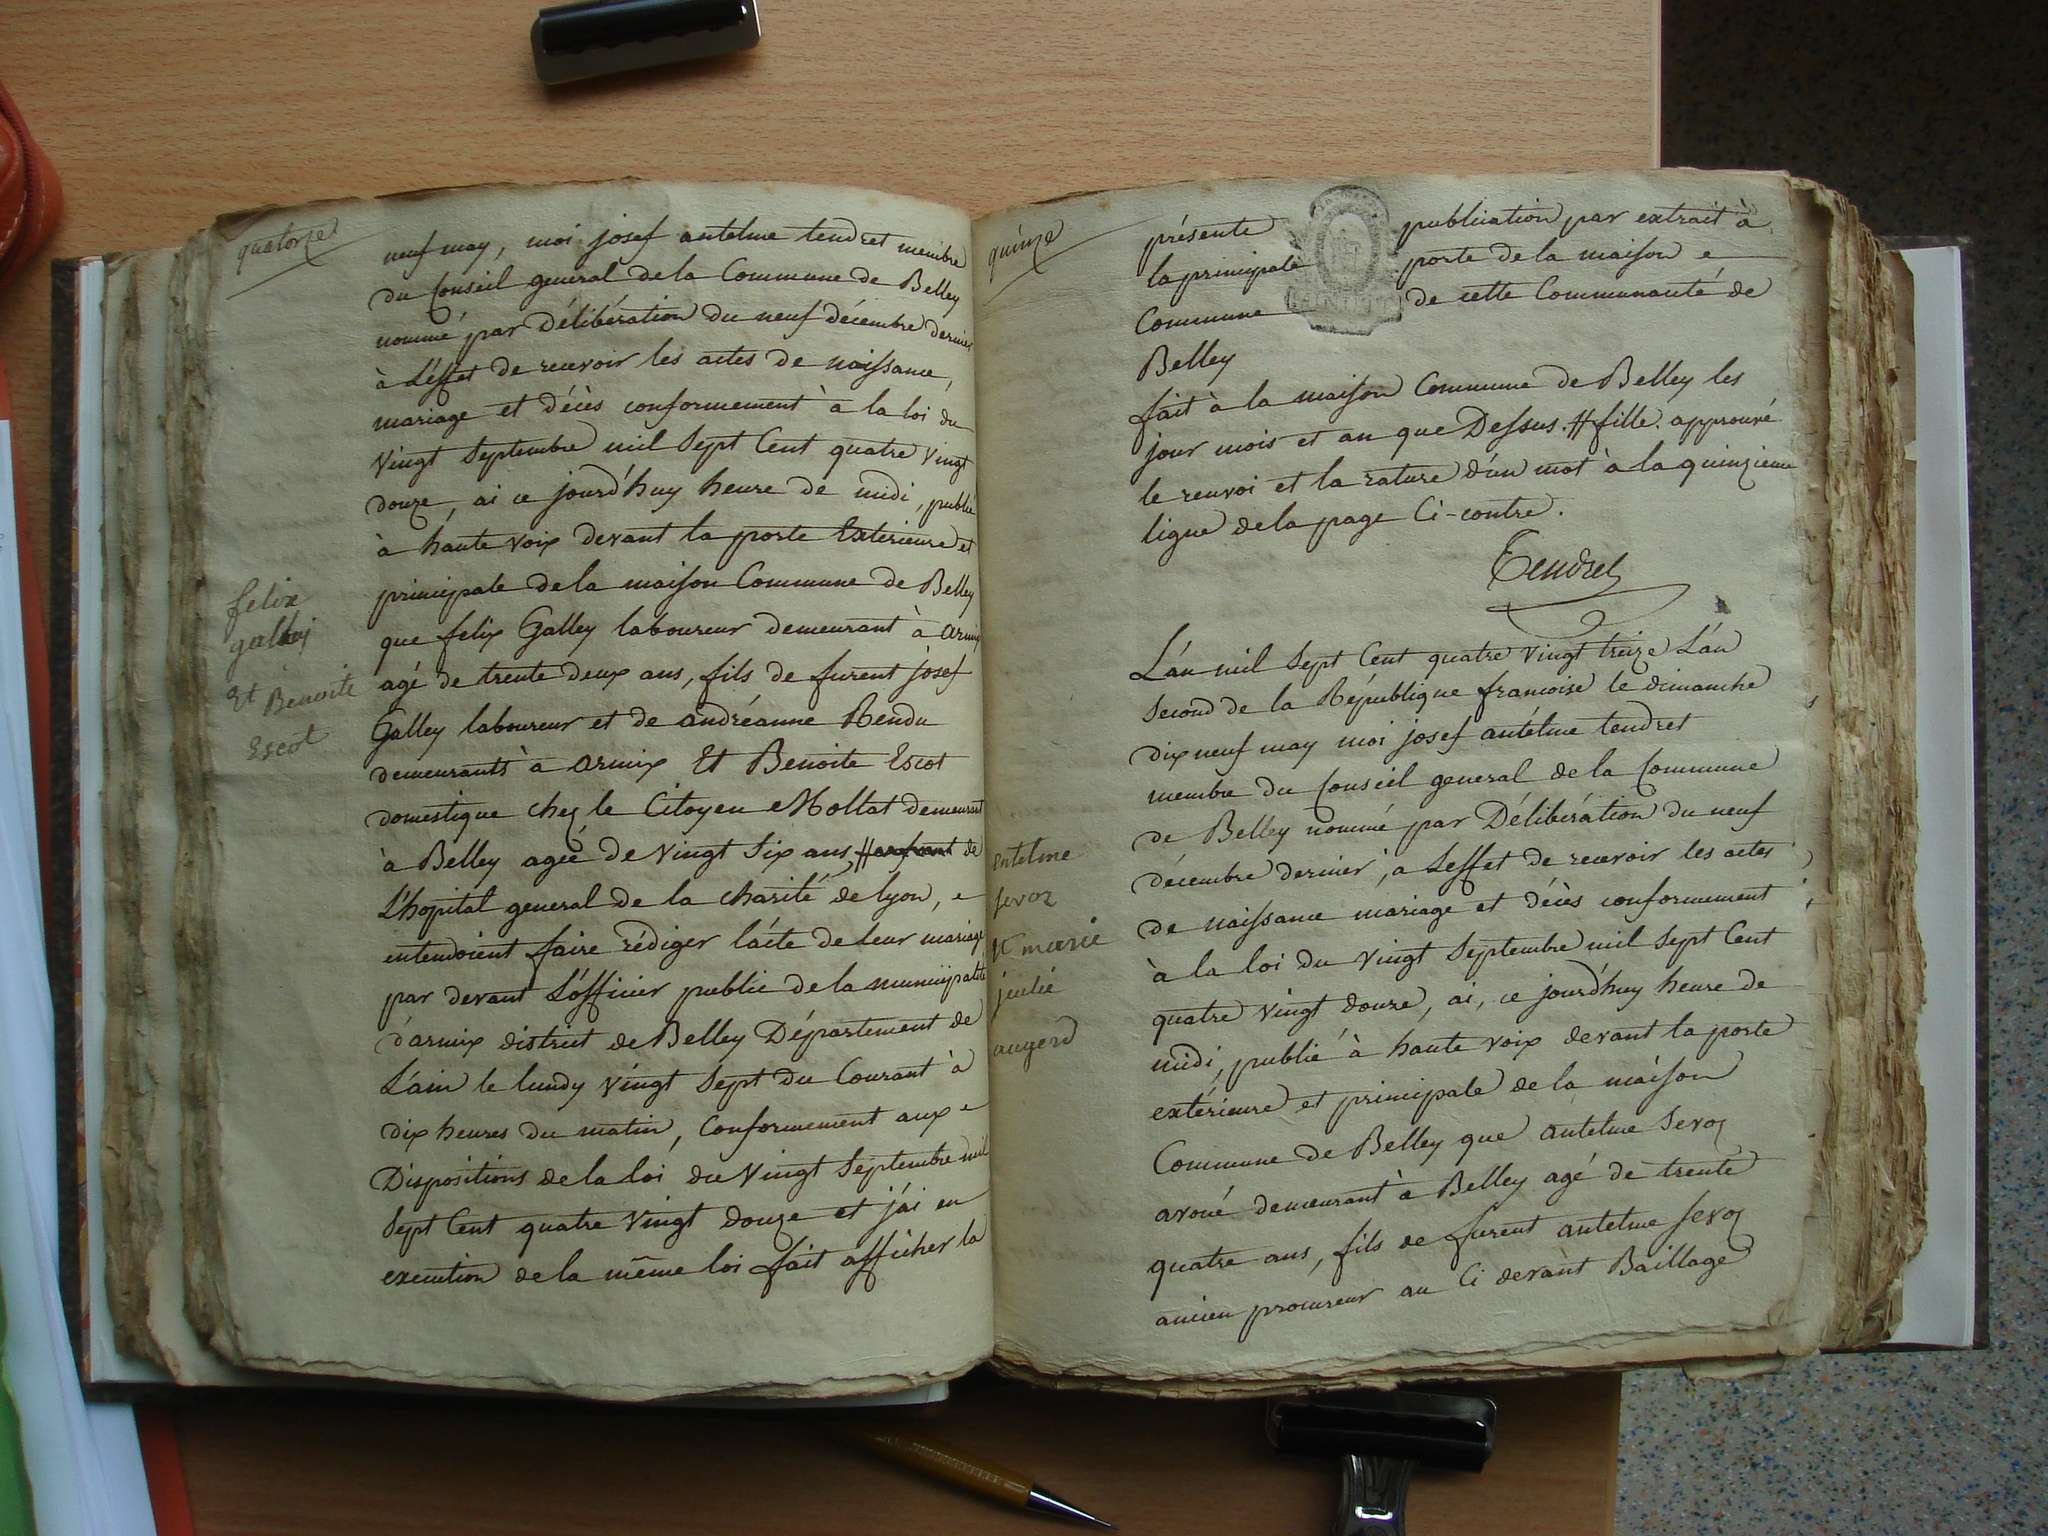 quatorze
neuf may, moi josef antelme tendret membre
du Conseil general de la Commune de Belley
nommé par Délibération du neuf décembre dernier
à L'effet de recevoir les actes de naissance,
mariage et décès conformement à la loi du
vingt Septembre mil Sept Cent quatre vingt
douze, ai ce jourd'huy heure de midi, publié
à haute voix devant la porte Extérieure et
principale de la maison Commune de Belley
que felix Galley laboureur demeurant à armix
agé de trente deux ans, fils de furent josef
Galley laboureur et de andréanne Rendu
demeurants à armix Et Benoite Escot
domestique chez le Citoyen Mollat demeurant
à Belley agée de vingt Six ans, # enfant de
L'hopital general de la charité de lyon,
entendoient faire rédiger l'acte de leur mariage
par devant L'officier public de la municipalité
d'armix district de Belley Département de
L'ain le lundy vingt Sept du Courant à
dix heures du matin, Conformement aux
Dispositions de la loi du vingt Septembre mil
Sept Cent quatre vingt douze et j'ai en
execution de la même loi fait afficher la
felix
galley
Et Benoite
Escot
quinze
présente publication par extrait à
la principale porte de la maison
Commune de cette Communauté de
Belley
fait à la maison Commune de Belley les
jour mois et an que Dessus. # fille. approuvé
le renvoi et la rature d'un mot à la quinzieme
ligne de la page Ci-contre.
Tendret
L'an mil Sept Cent quatre vingt treize L'an
Second de la République françoise le dimanche
dix neuf may moi josef antelme tendret
membre du Conseil general de la Commune
de Belley nommé par Délibération du neuf
décembre dernier, a L'effet de recevoir les actes
de naissance mariage et décès conformement
à la loi du vingt Septembre mil Sept Cent
quatre vingt douze, ai, ce jourd'huy heure de
midi, publié à haute voix devant la porte
extérieure et principale de la maison
Commune de Belley que antelme Sevoz
avoué demeurant à Belley agé de trente
quatre ans, fils de furent antelme Sevoz
ancien procureur au Ci devant Baillage
antelme
sevoz
Et marie
julie
augerd